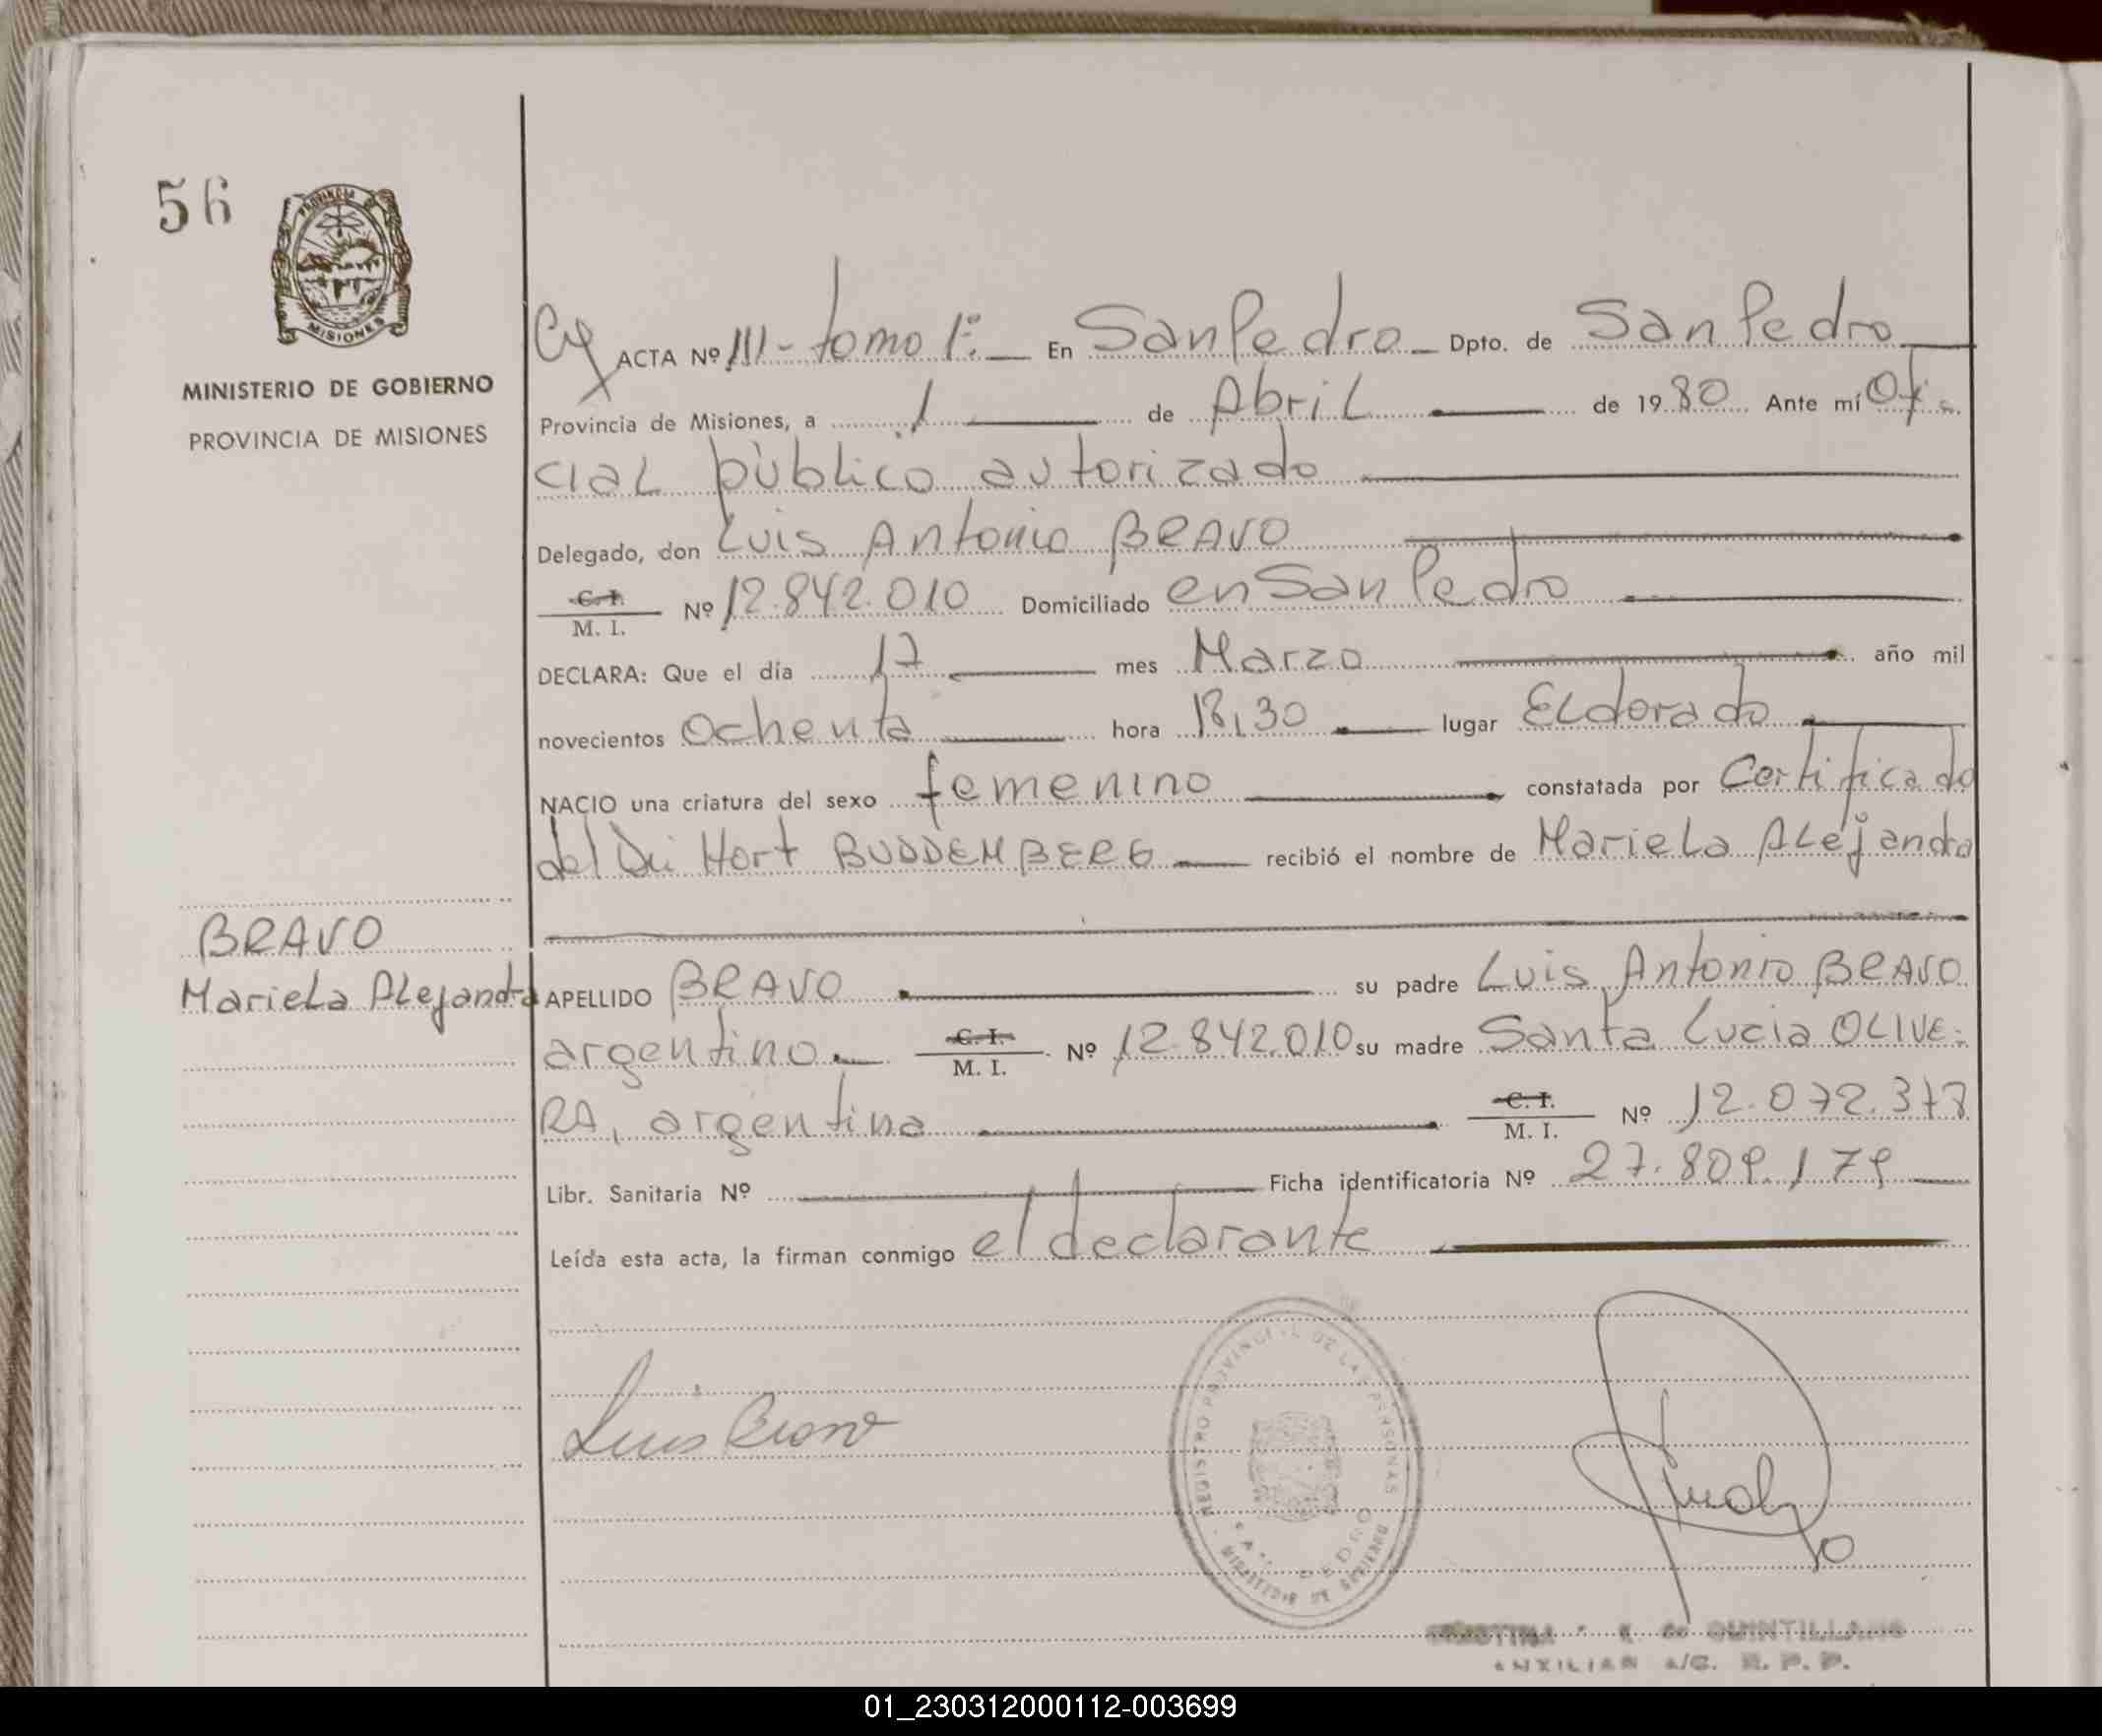 56
PROVINCIA
MISIONES
MINISTERIO DE GOBIERNO
PROVINCIA DE MISIONES
ACTA Nº 111 - tomo 1º En San Pedro Dpto. de San Pedro
Provincia de Misiones, a 1 de Abril de 1980 Ante mí Ofi-
cial público autorizado
Delegado, don Luis Antonio BRAVO
C. I. / M. I. Nº 12.842.010 Domiciliado en San Pedro
DECLARA: Que el día 17 mes Marzo año mil
novecientos ochenta hora 18,30 lugar Eldorado
NACIO una criatura del sexo femenino constatada por Certificado
del Dr. Hort BUDDEMBERG recibió el nombre de Mariela Alejandra
BRAVO
Mariela Alejandra
APELLIDO BRAVO su padre Luis Antonio BRAVO
argentino C. I. / M. I. Nº 12.842.010 su madre Santa Lucia OLIVE-
RA, argentina C. I. / M. I. Nº 12.072.378
Libr. Sanitaria Nº Ficha identificatoria Nº 27.809.179
Leída esta acta, la firman conmigo el declarante
Luis Bravo
REGISTRO PROVINCIAL DE LAS PERSONAS
SAN PEDRO
MINISTERIO DE GOBIERNO
de QUINTILLANO
AUXILIAR A/C. R. P. P.
01_230312000112-003699